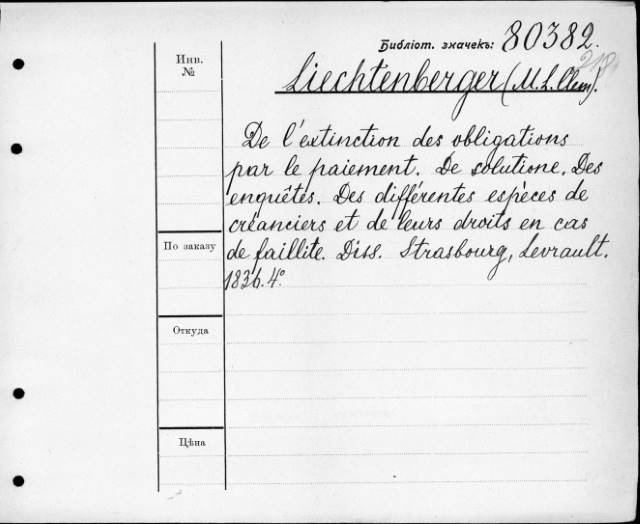 Библіот. значекъ: 80382.
Инв.
№
Liechtenberger (M. L. Clem).
De l'extinction des obligations
par le paiement. De solutione. Des
enquêtes. Des différentes espèces de
créanciers et de leurs droits en cas
de faillite. Diss. Strasbourg, Levrault.
1836. 4º
По заказу
Откуда
Цѣна